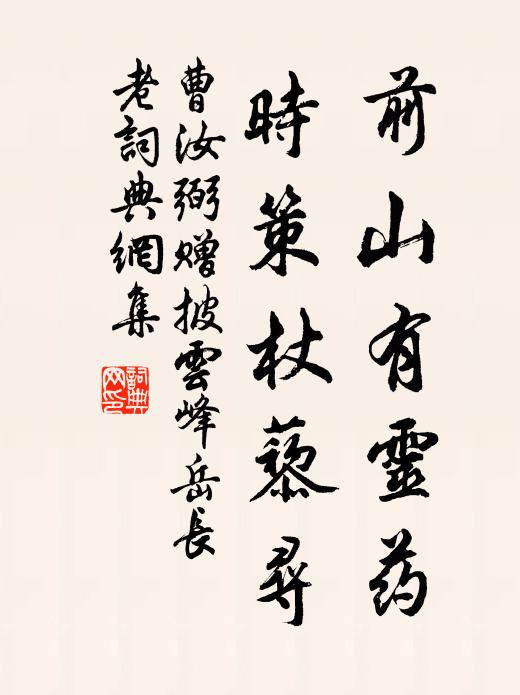 前山有靈药
時策杖藜尋
曹汝弼赠披雲峰岳長
老詞典網集
詞典網印